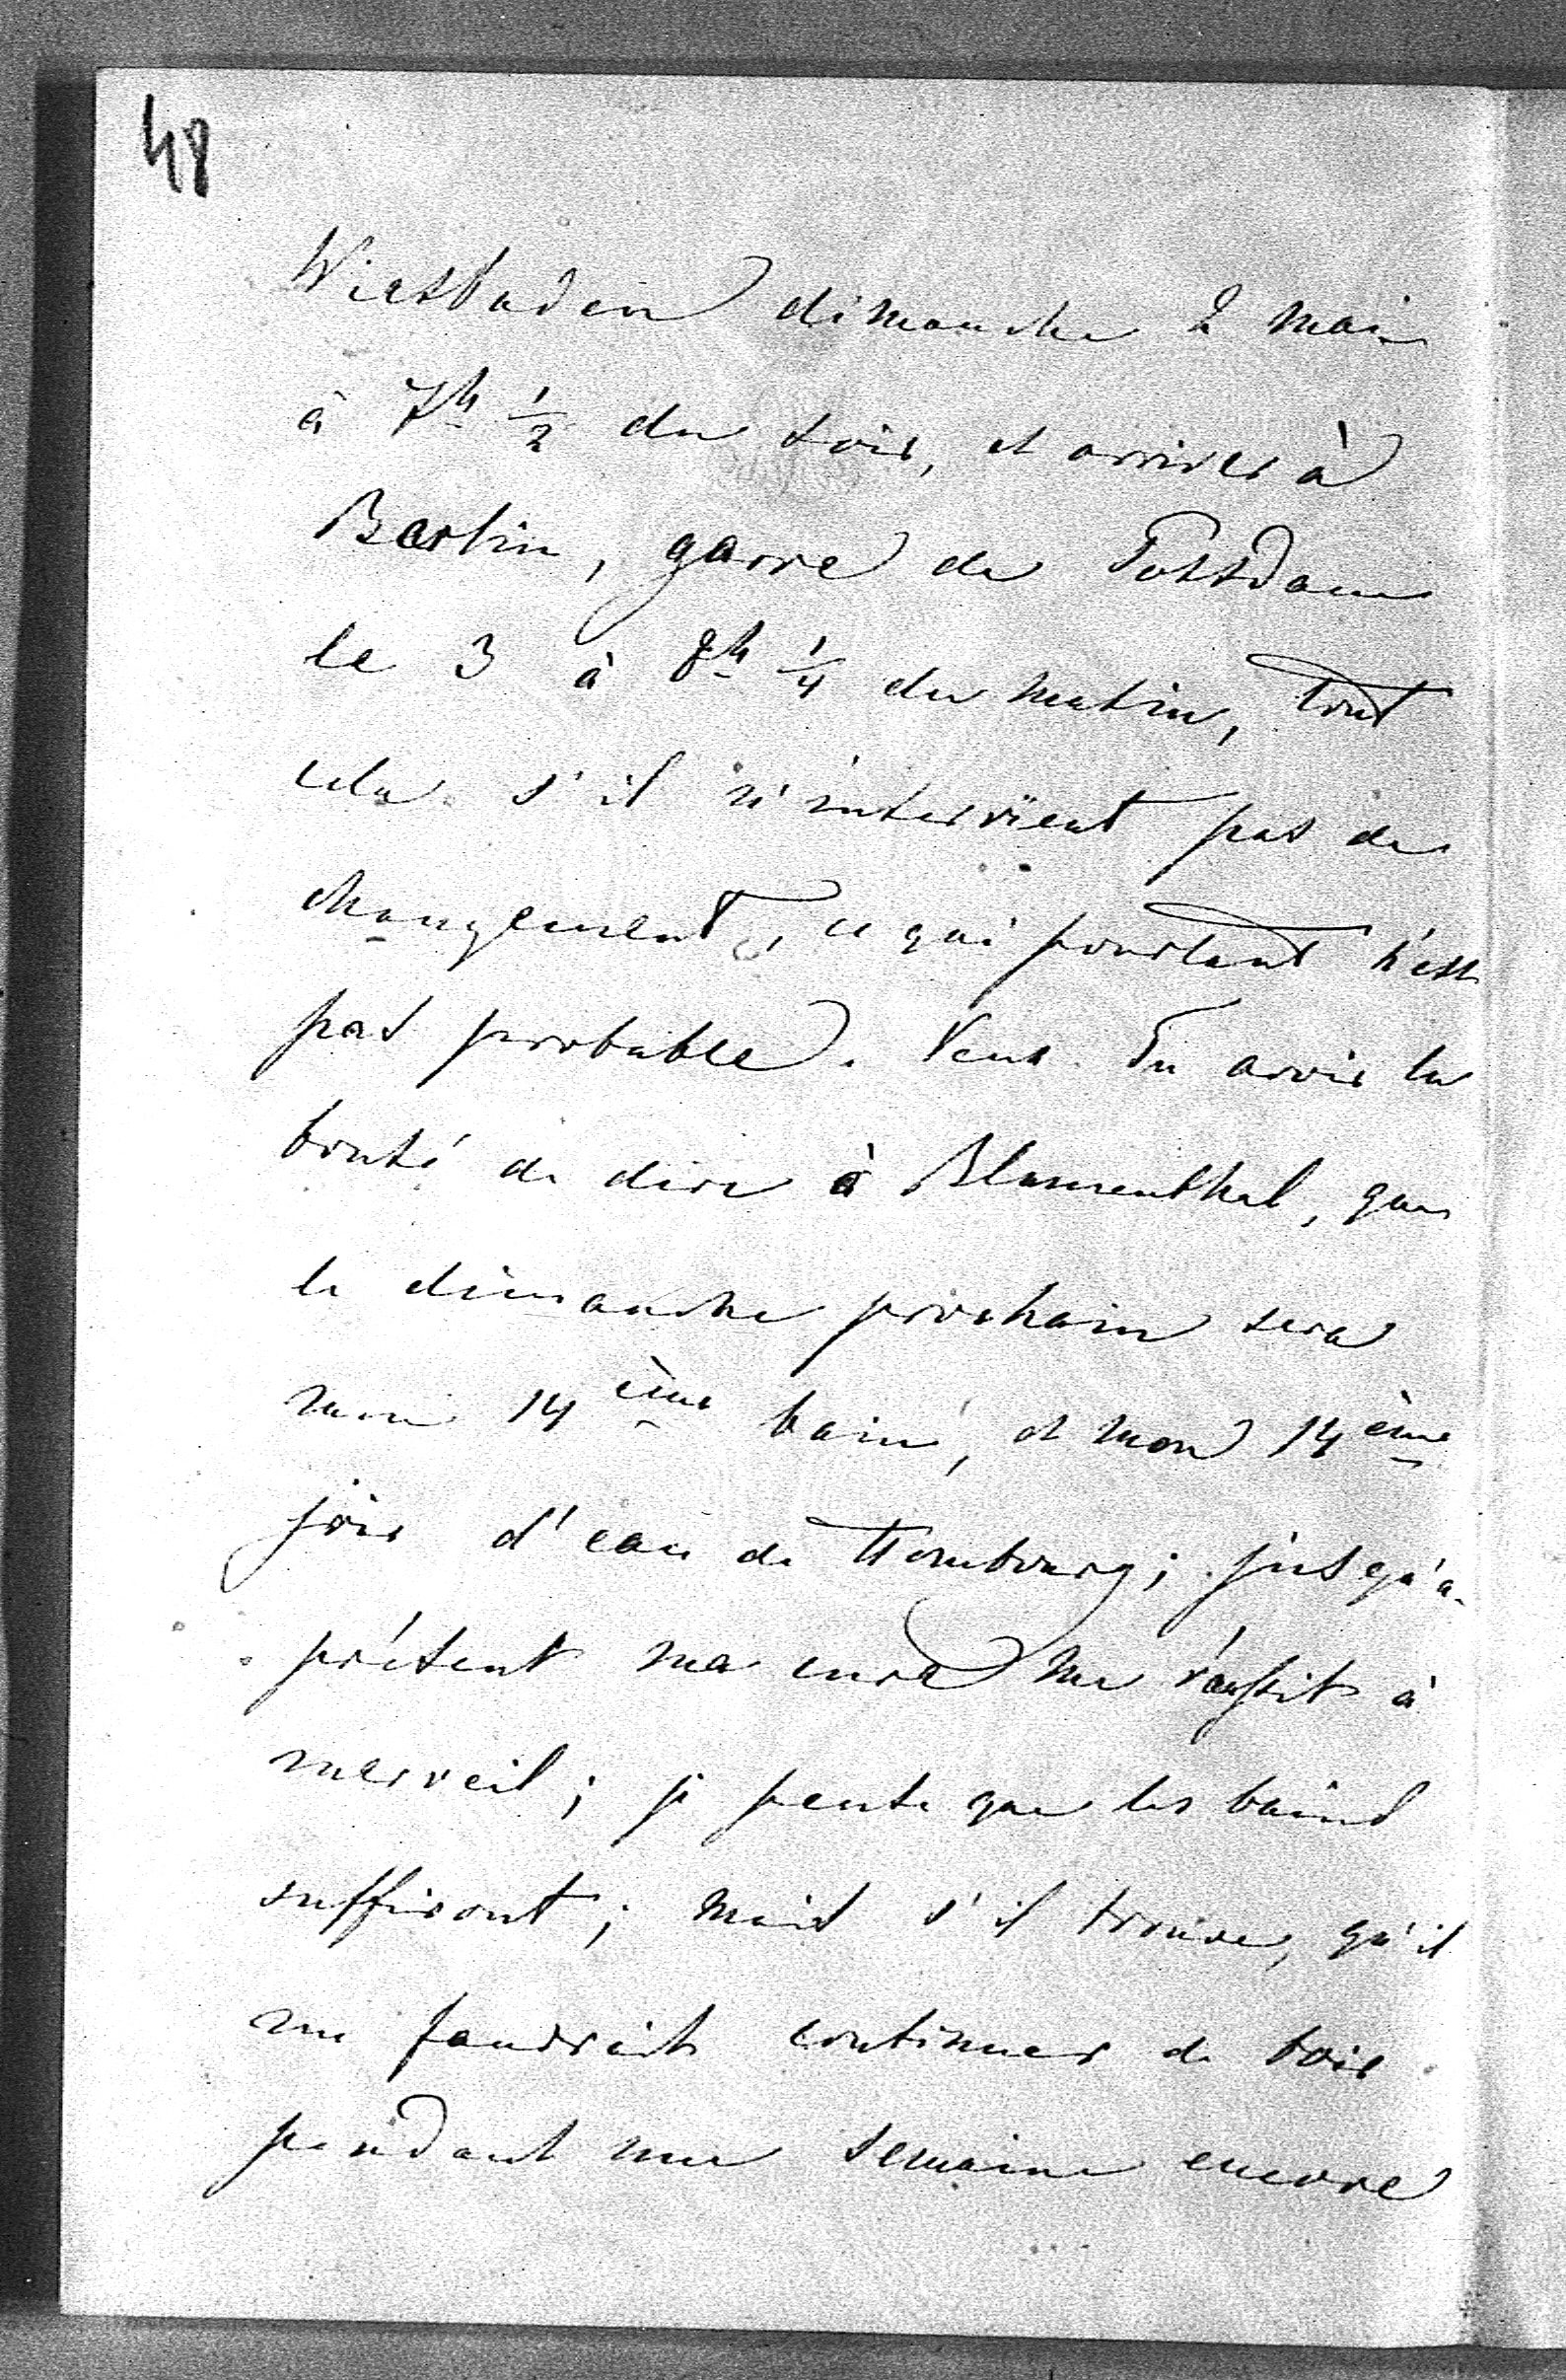 48
Wiesbaden dimanche 2 mai
à 7h ½ du soir, et arriver à
Berlin, garre de Potsdam
le 3 à 8h ¼ du matin, tout
cela s'il n'intervient pas de
changement, ce qui pourtant n'est
pas probable. Veux Tu avoir la
bonté de dire à Blumenthal, que
le dimanche prochain sera
mon 14ème bain, et mon 14ème
jour d'eau de Hombourg; jusqu'à
présent ma cure me réussit à
merveil; je pense que les bains
suffiront; mais s'il trouve, qu'il
me faudrait continuer de boir
pendant une semaine encore